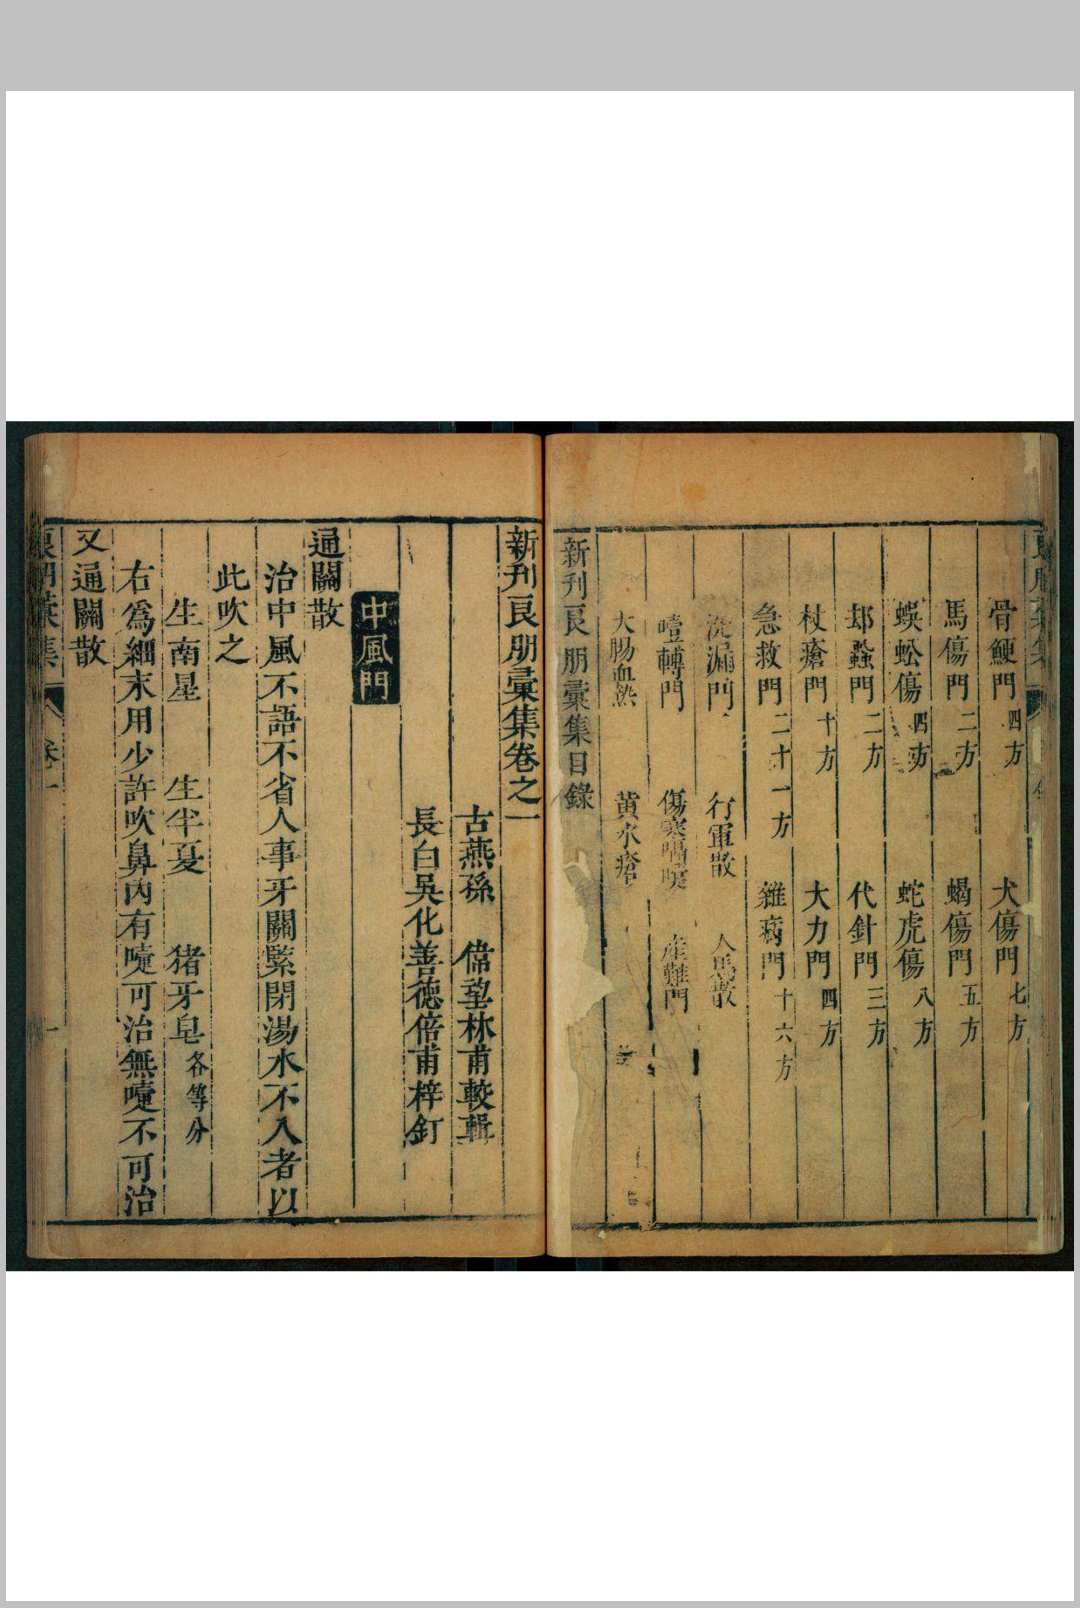 骨鯁門 四方 犬傷門 七方
馬傷門 二方 蝎傷門 五方
蜈蚣傷 四方 蛇虎傷 八方
邶蝨門 二方 代針門 三方
杖瘡門 十方 大力門 四方
急救門 二十一方 雜病門 十六方
漏門 行軍散 人馬散
噎轉門 傷寒 產難門
大腸血熱 黃水瘡
新刊良朋彙集目錄
新刊良朋彙集卷之一
古燕孫 偉望林甫較輯
長白吳化善德倍甫梓釘
中風門
通關散
治中風不語不省人事牙關緊閉湯水不入者以
此吹之
生南星 生半夏 猪牙皂 各等分
右為細末用少許吹鼻內有嚏可治無嚏不可治
又通關散
良朋彙集 卷一 一